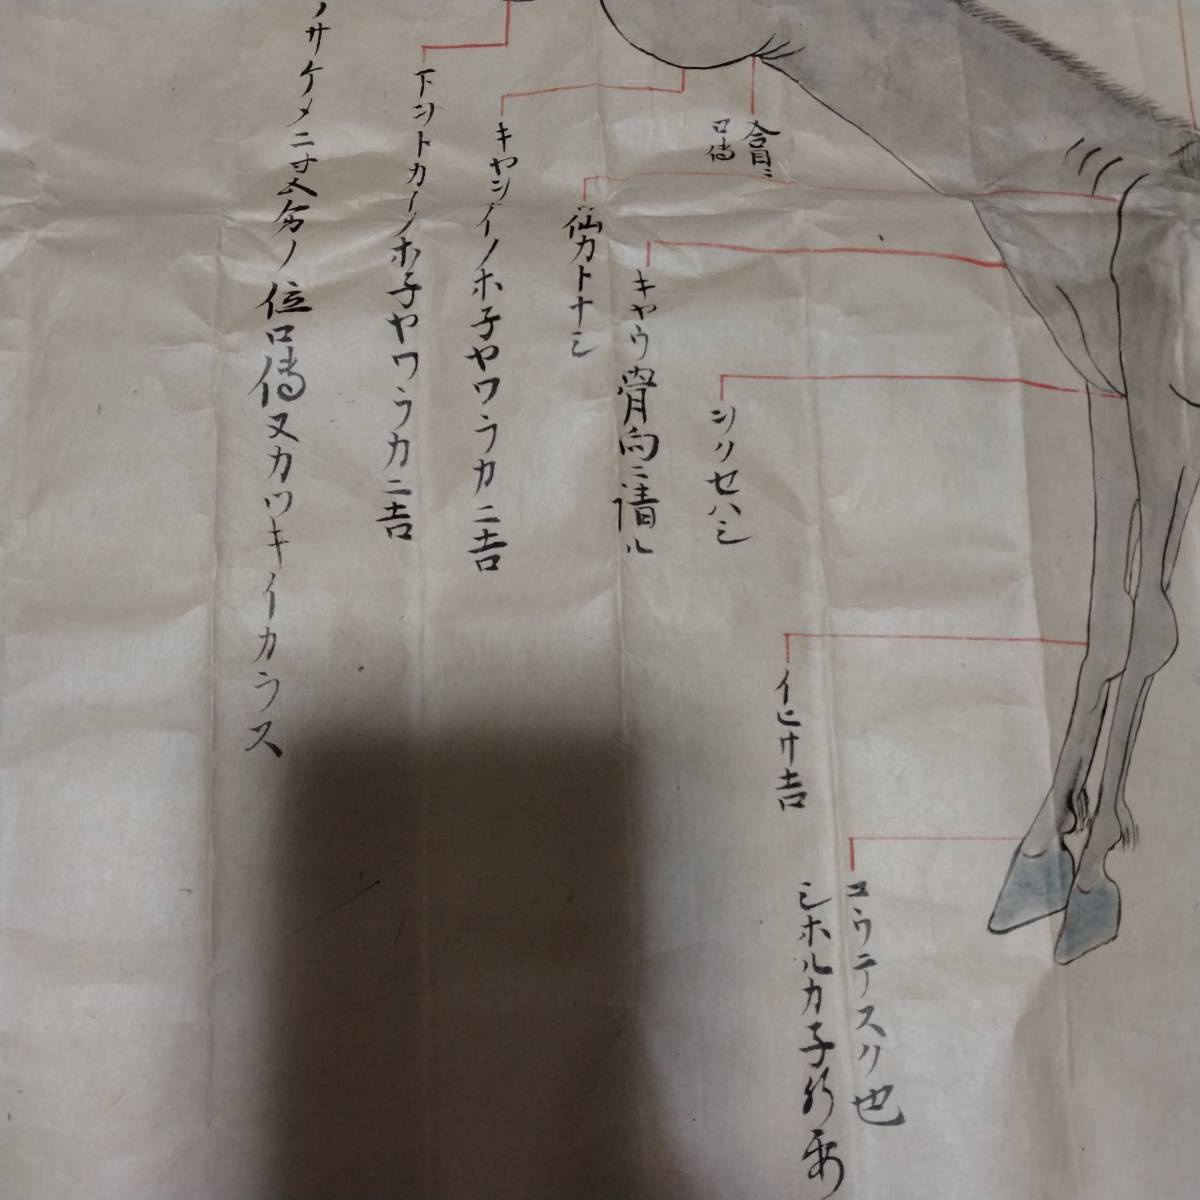 コウテスク也
シホルカ子形要
イヒサ吉
シリセハシ
含目ミ
口傳
キヤウ骨向ニ請ル
仙力トナシ
キヤシイノホ子ヤワラカニ吉
下シトカイノホ子ヤワラカニ吉
ノサケメニ寸五分ノ位口傳又カツキイカラス